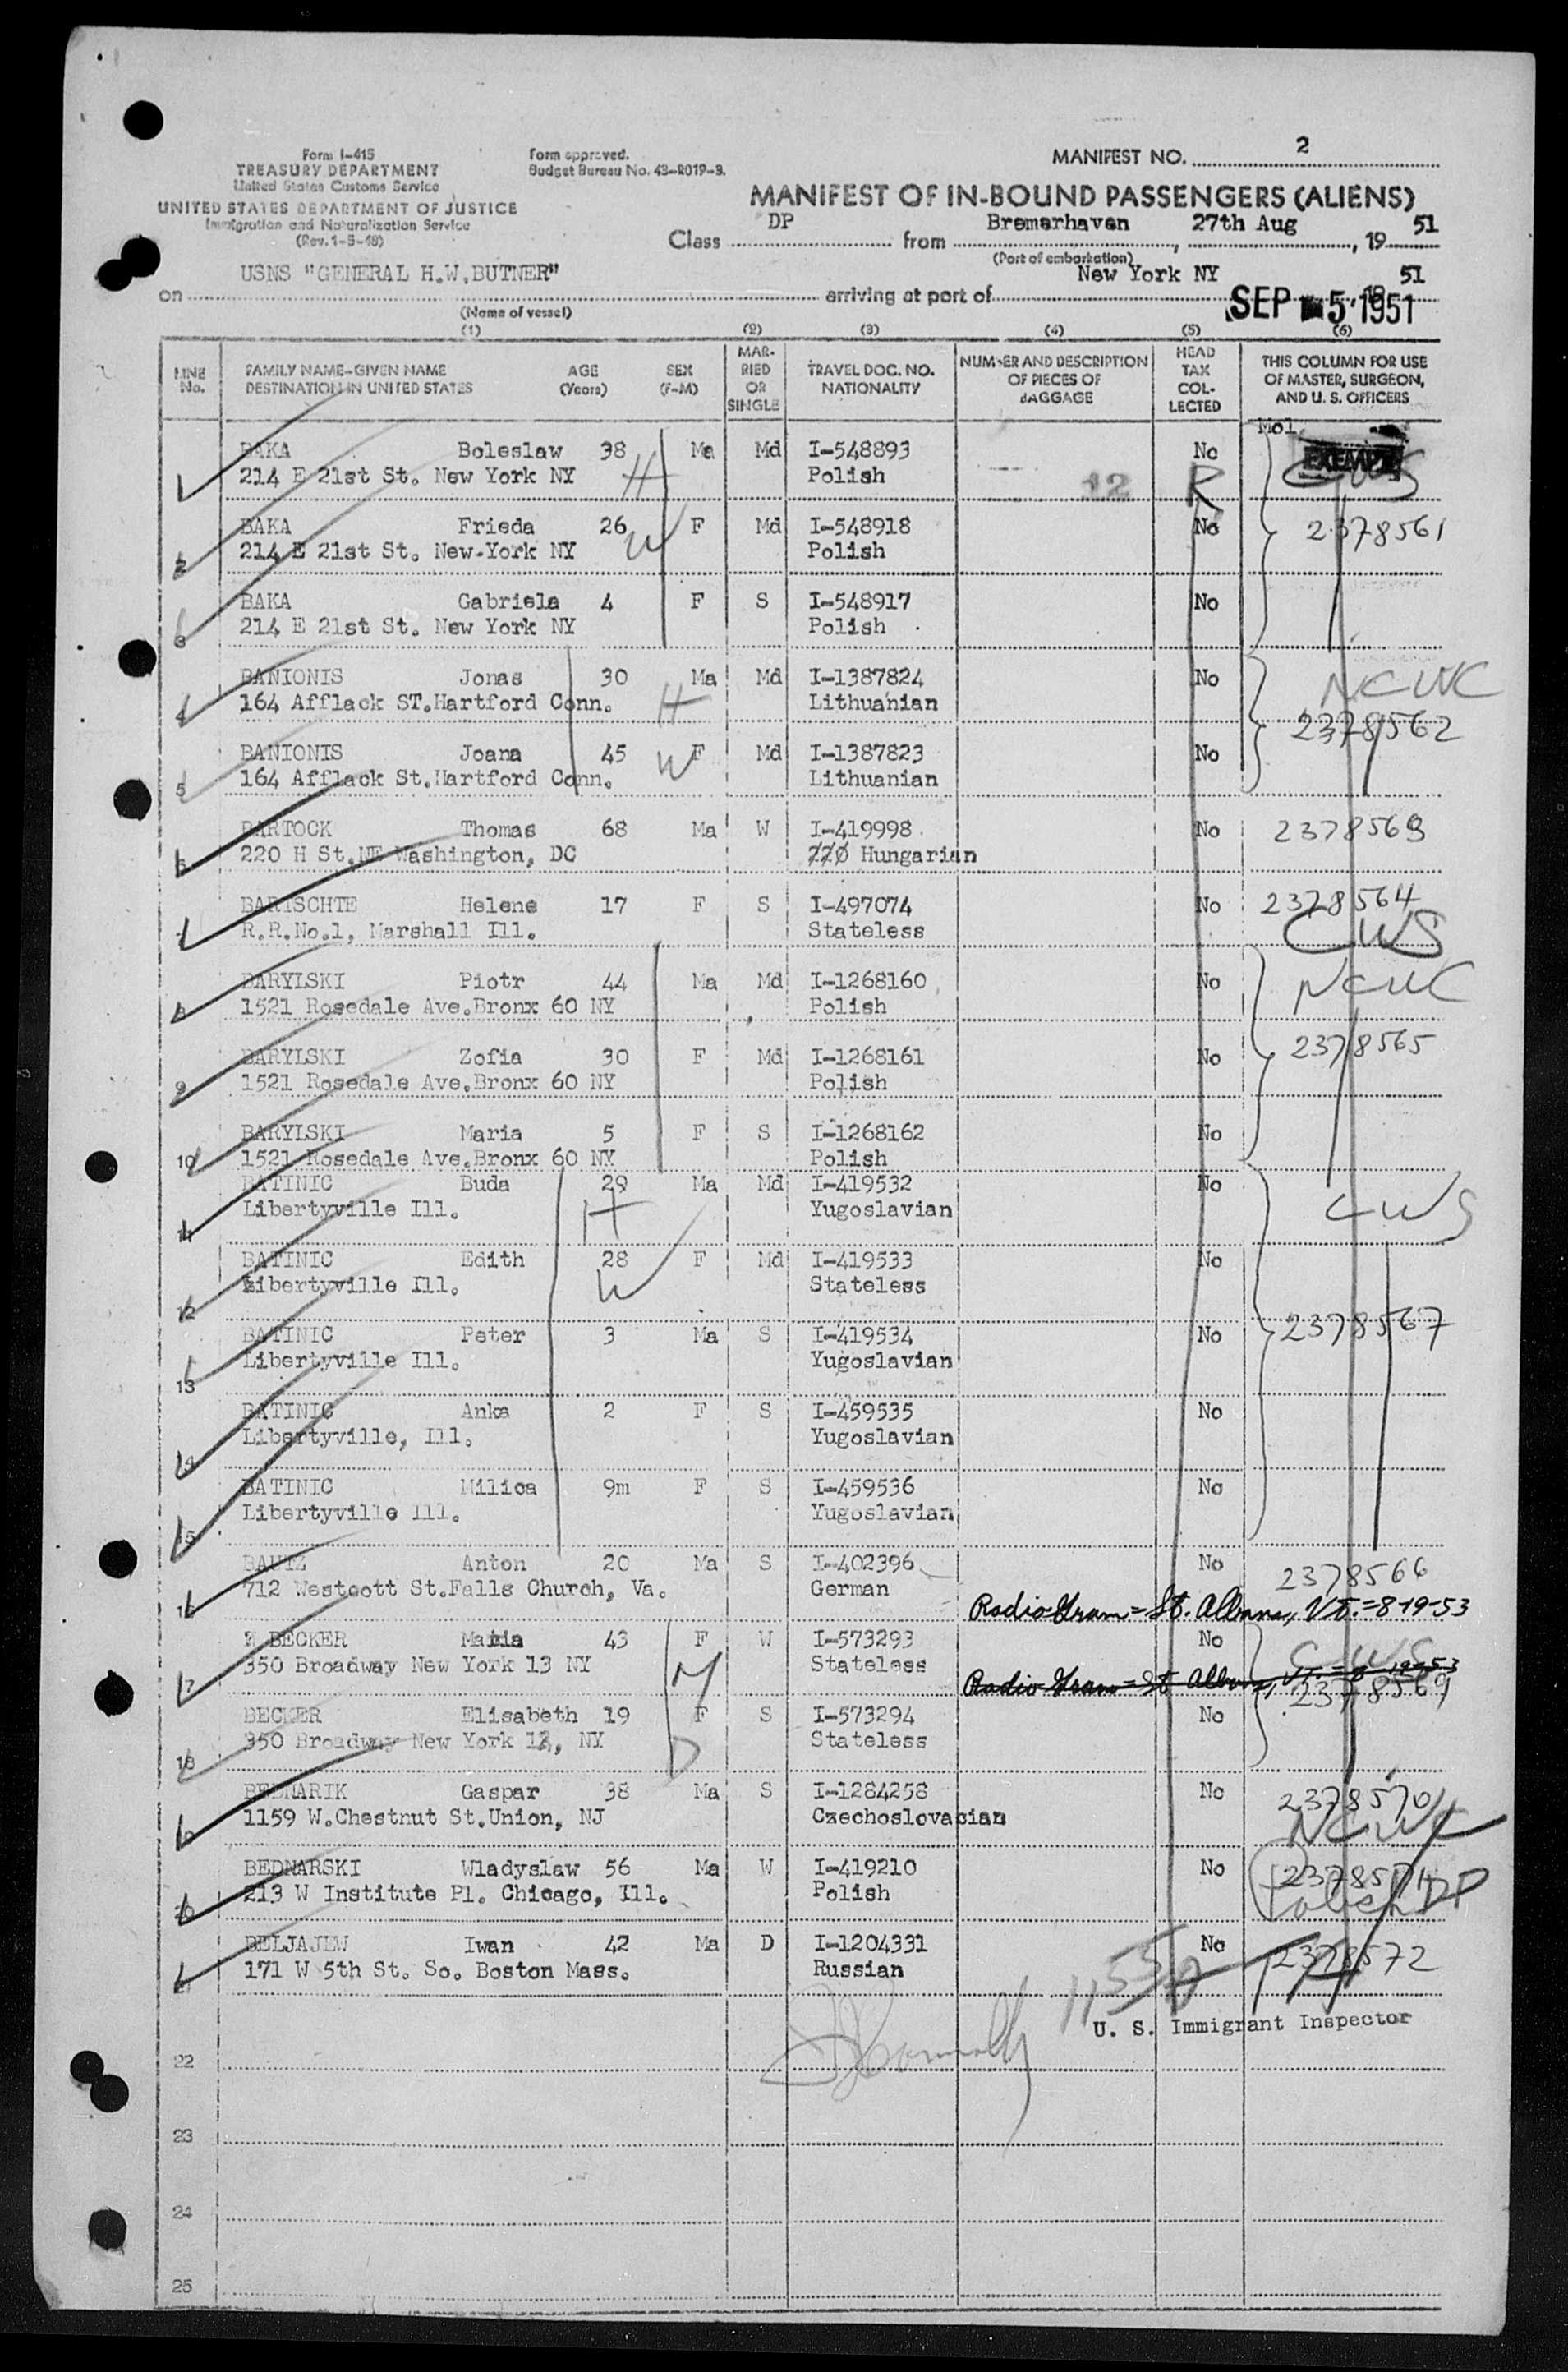 Form I-415
TREASURY DEPARTMENT
United States Customs Service
UNITED STATES DEPARTMENT OF JUSTICE
Immigration and Naturalization Service
(Rev. 1-5-48)
Form approved.
Budget Bureau No. 43-R019-3.
MANIFEST NO. 2
MANIFEST OF IN-BOUND PASSENGERS (ALIENS)
Class DP from Bremerhaven, 27th Aug, 19 51
(Port of embarkation)
on USNS "GENERAL H.W.BUTNER" arriving at port of New York NY 19 51
SEP 5 1951
(Name of vessel)
(1) (2) (3) (4) (5) (6)
LINE No. FAMILY NAME-GIVEN NAME DESTINATION IN UNITED STATES AGE (Years) SEX (F-M) MARRIED OR SINGLE TRAVEL DOC. NO. NATIONALITY NUMBER AND DESCRIPTION OF PIECES OF BAGGAGE HEAD TAX COLLECTED THIS COLUMN FOR USE OF MASTER, SURGEON, AND U. S. OFFICERS
Mol. EXEMPT
1 BAKA Boleslaw 38 Ma Md I-548893 No CWS
214 E 21st St. New York NY H Polish 12 R
2 BAKA Frieda 26 F Md I-548918 No 2378561
214 E 21st St. New-York NY W Polish
3 BAKA Gabriela 4 F S I-548917 No
214 E 21st St. New York NY Polish
4 BANIONIS Jonas 30 Ma Md I-1387824 No NCWC
164 Afflack ST.Hartford Conn. H Lithuanian 2378562
5 BANIONIS Joana 45 W F Md I-1387823 No
164 Afflack St.Hartford Conn. Lithuanian
6 BARTOCK Thomas 68 Ma W I-419998 No 2378563
220 H St.NE Washington, DC Hungarian
7 BARTSCHTE Helene 17 F S I-497074 No 2378564
R.R.No.1, Marshall Ill. Stateless CWS
8 BARYLSKI Piotr 44 Ma Md I-1268160 No NCWC
1521 Rosedale Ave.Bronx 60 NY Polish
9 BARYLSKI Zofia 30 F Md I-1268161 No 2378565
1521 Rosedale Ave.Bronx 60 NY Polish
10 BARYLSKI Maria 5 F S I-1268162 No
1521 Rosedale Ave.Bronx 60 NY Polish
11 BATINIC Buda 29 Ma Md I-419532 No CWS
Libertyville Ill. H Yugoslavian
12 BATINIC Edith 28 F Md I-419533 No
Libertyville Ill. W Stateless
13 BATINIC Peter 3 Ma S I-419534 No 2378567
Libertyville Ill. Yugoslavian
14 BATINIC Anka 2 F S I-459535 No
Libertyville, Ill. Yugoslavian
15 BATINIC Milica 9m F S I-459536 No
Libertyville Ill. Yugoslavian
16 BAUTZ Anton 20 Ma S I-402396 No 2378566
712 Westcott St.Falls Church, Va. German
Radio Gram = St. Albans, VT. = 8-19-53
17 BECKER Maria 43 F W I-573293 No CWS
350 Broadway New York 13 NY M Stateless
Radio Gram = St Albans, VT. = 8-19-53 2378569
18 BECKER Elisabeth 19 F S I-573294 No
350 Broadway New York 13, NY D Stateless
19 BEDNARIK Gaspar 38 Ma S I-1284258 No 2378570
1159 W.Chestnut St.Union, NJ Czechoslovacian NCWC
20 BEDNARSKI Wladyslaw 56 Ma W I-419210 No 2378571
213 W Institute Pl. Chicago, Ill. Polish Polish DP
21 BELJAJEW Iwan 42 Ma D I-1204331 No 2378572
171 W 5th St. So. Boston Mass. Russian
U. S. Immigrant Inspector
22
23
24
25